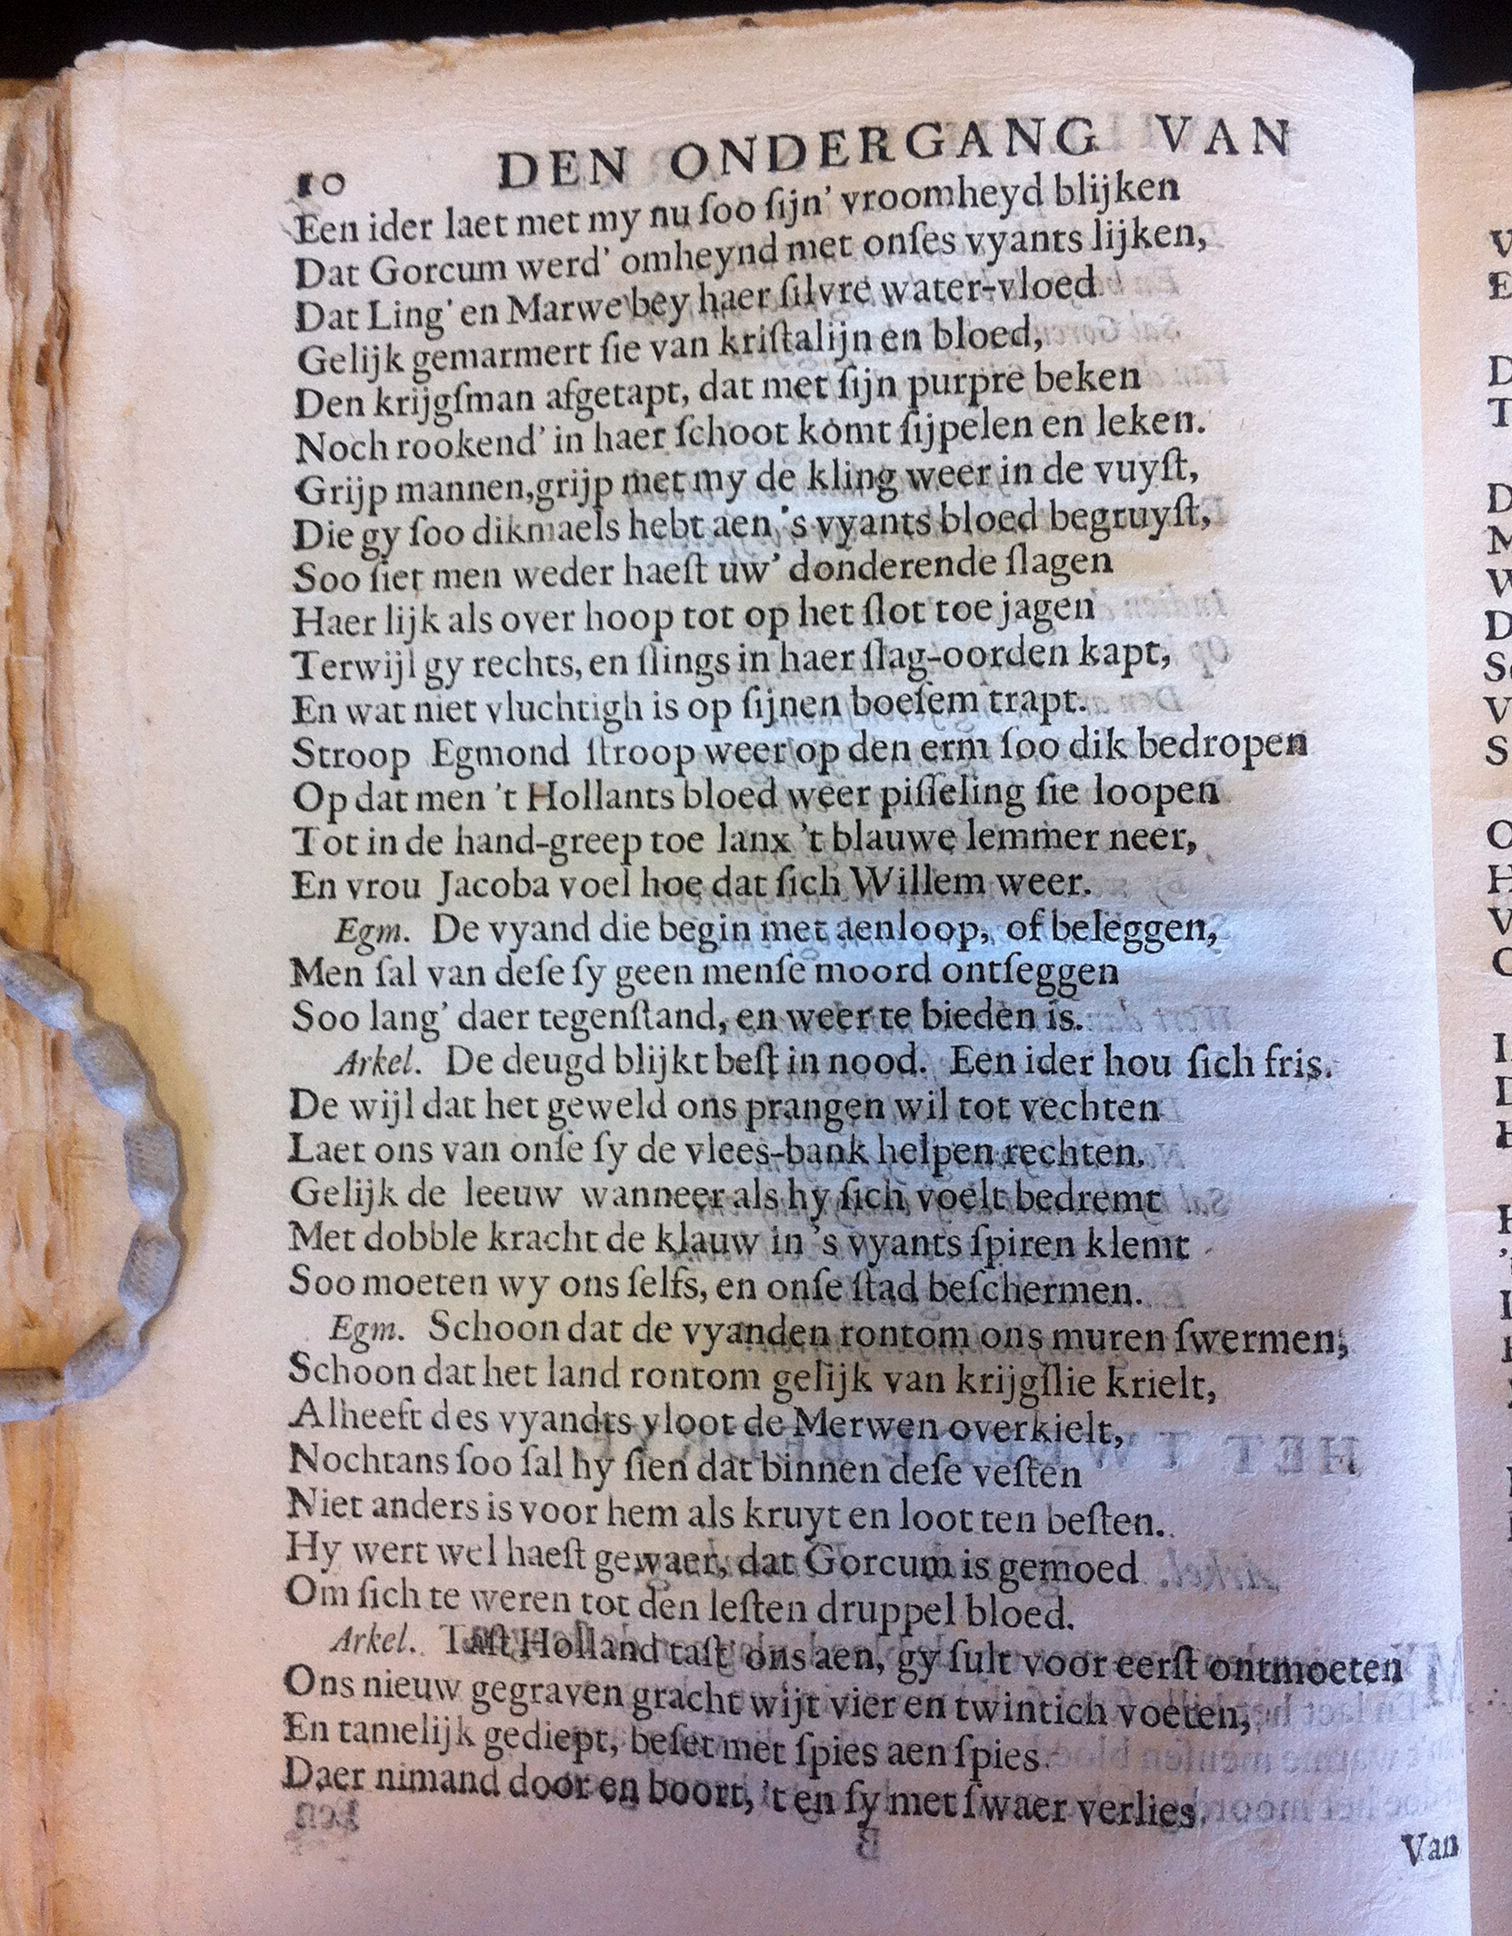 10 DEN ONDERGANG VAN
Een ider laet met my nu ſoo ſijn’ vroomheyd blijken
Dat Gorcum werd’ omheynd met onſes vyants lijken,
Dat Ling’ en Marwe bey haer ſilvre water-vloed
Gelijk gemarmert ſie van kriſtalijn en bloed,
Den krijgſman afgetapt, dat met ſijn purpre beken
Noch rookend’ in haer ſchoot komt ſijpelen en leken.
Grijp mannen, grijp met my de kling weer in de vuyſt,
Die gy ſoo dikmaels hebt aen ’s vyants bloed begruyſt,
Soo ſiet men weder haeſt uw’ donderende ſlagen
Haer lijk als over hoop tot op het ſlot toe jagen
Terwijl gy rechts, en ſlings in haer ſlag-oorden kapt,
En wat niet vluchtigh is op ſijnen boeſem trapt.
Stroop Egmond ſtroop weer op den erm ſoo dik bedropen
Op dat men ’t Hollants bloed weer piſſeling ſie loopen
Tot in de hand-greep toe lanx ’t blauwe lemmer neer,
En vrou Jacoba voel hoe dat ſich Willem weer.
Egm. De vyand die begin met aenloop, of beleggen,
Men ſal van deſe ſy geen menſe moord ontſeggen
Soo lang’ daer tegenſtand, en weer te bieden is.
Arkel. De deugd blijkt beſt in nood. Een ider hou ſich fris.
De wijl dat het geweld ons prangen wil tot vechten
Laet ons van onſe ſy de vlees-bank helpen rechten.
Gelijk de leeuw wanneer als hy ſich voelt bedremt
Met dobble kracht de klauw in ’s vyants ſpiren klemt
Soo moeten wy ons ſelfs, en onſe ſtad beſchermen.
Egm. Schoon dat de vyanden rontom ons muren ſwermen,
Schoon dat het land rontom gelijk van krijgſlie krielt,
Al heeft des vyandts vloot de Merwen overkielt,
Nochtans ſoo ſal hy ſien dat binnen deſe veſten
Niet anders is voor hem als kruyt en loot ten beſten.
Hy wert wel haeſt gewaer, dat Gorcum is gemoed
Om ſich te weren tot den leſten druppel bloed.
Arkel. Taſt Holland taſt’ ons aen, gy ſult voor eerſt ontmoeten
Ons nieuw gegraven gracht wijt vier en twintich voeten,
En tamelijk gediept, beſet met ſpies aen ſpies.
Daer nimand door en boort, ’t en ſy met ſwaer verlies.
Van